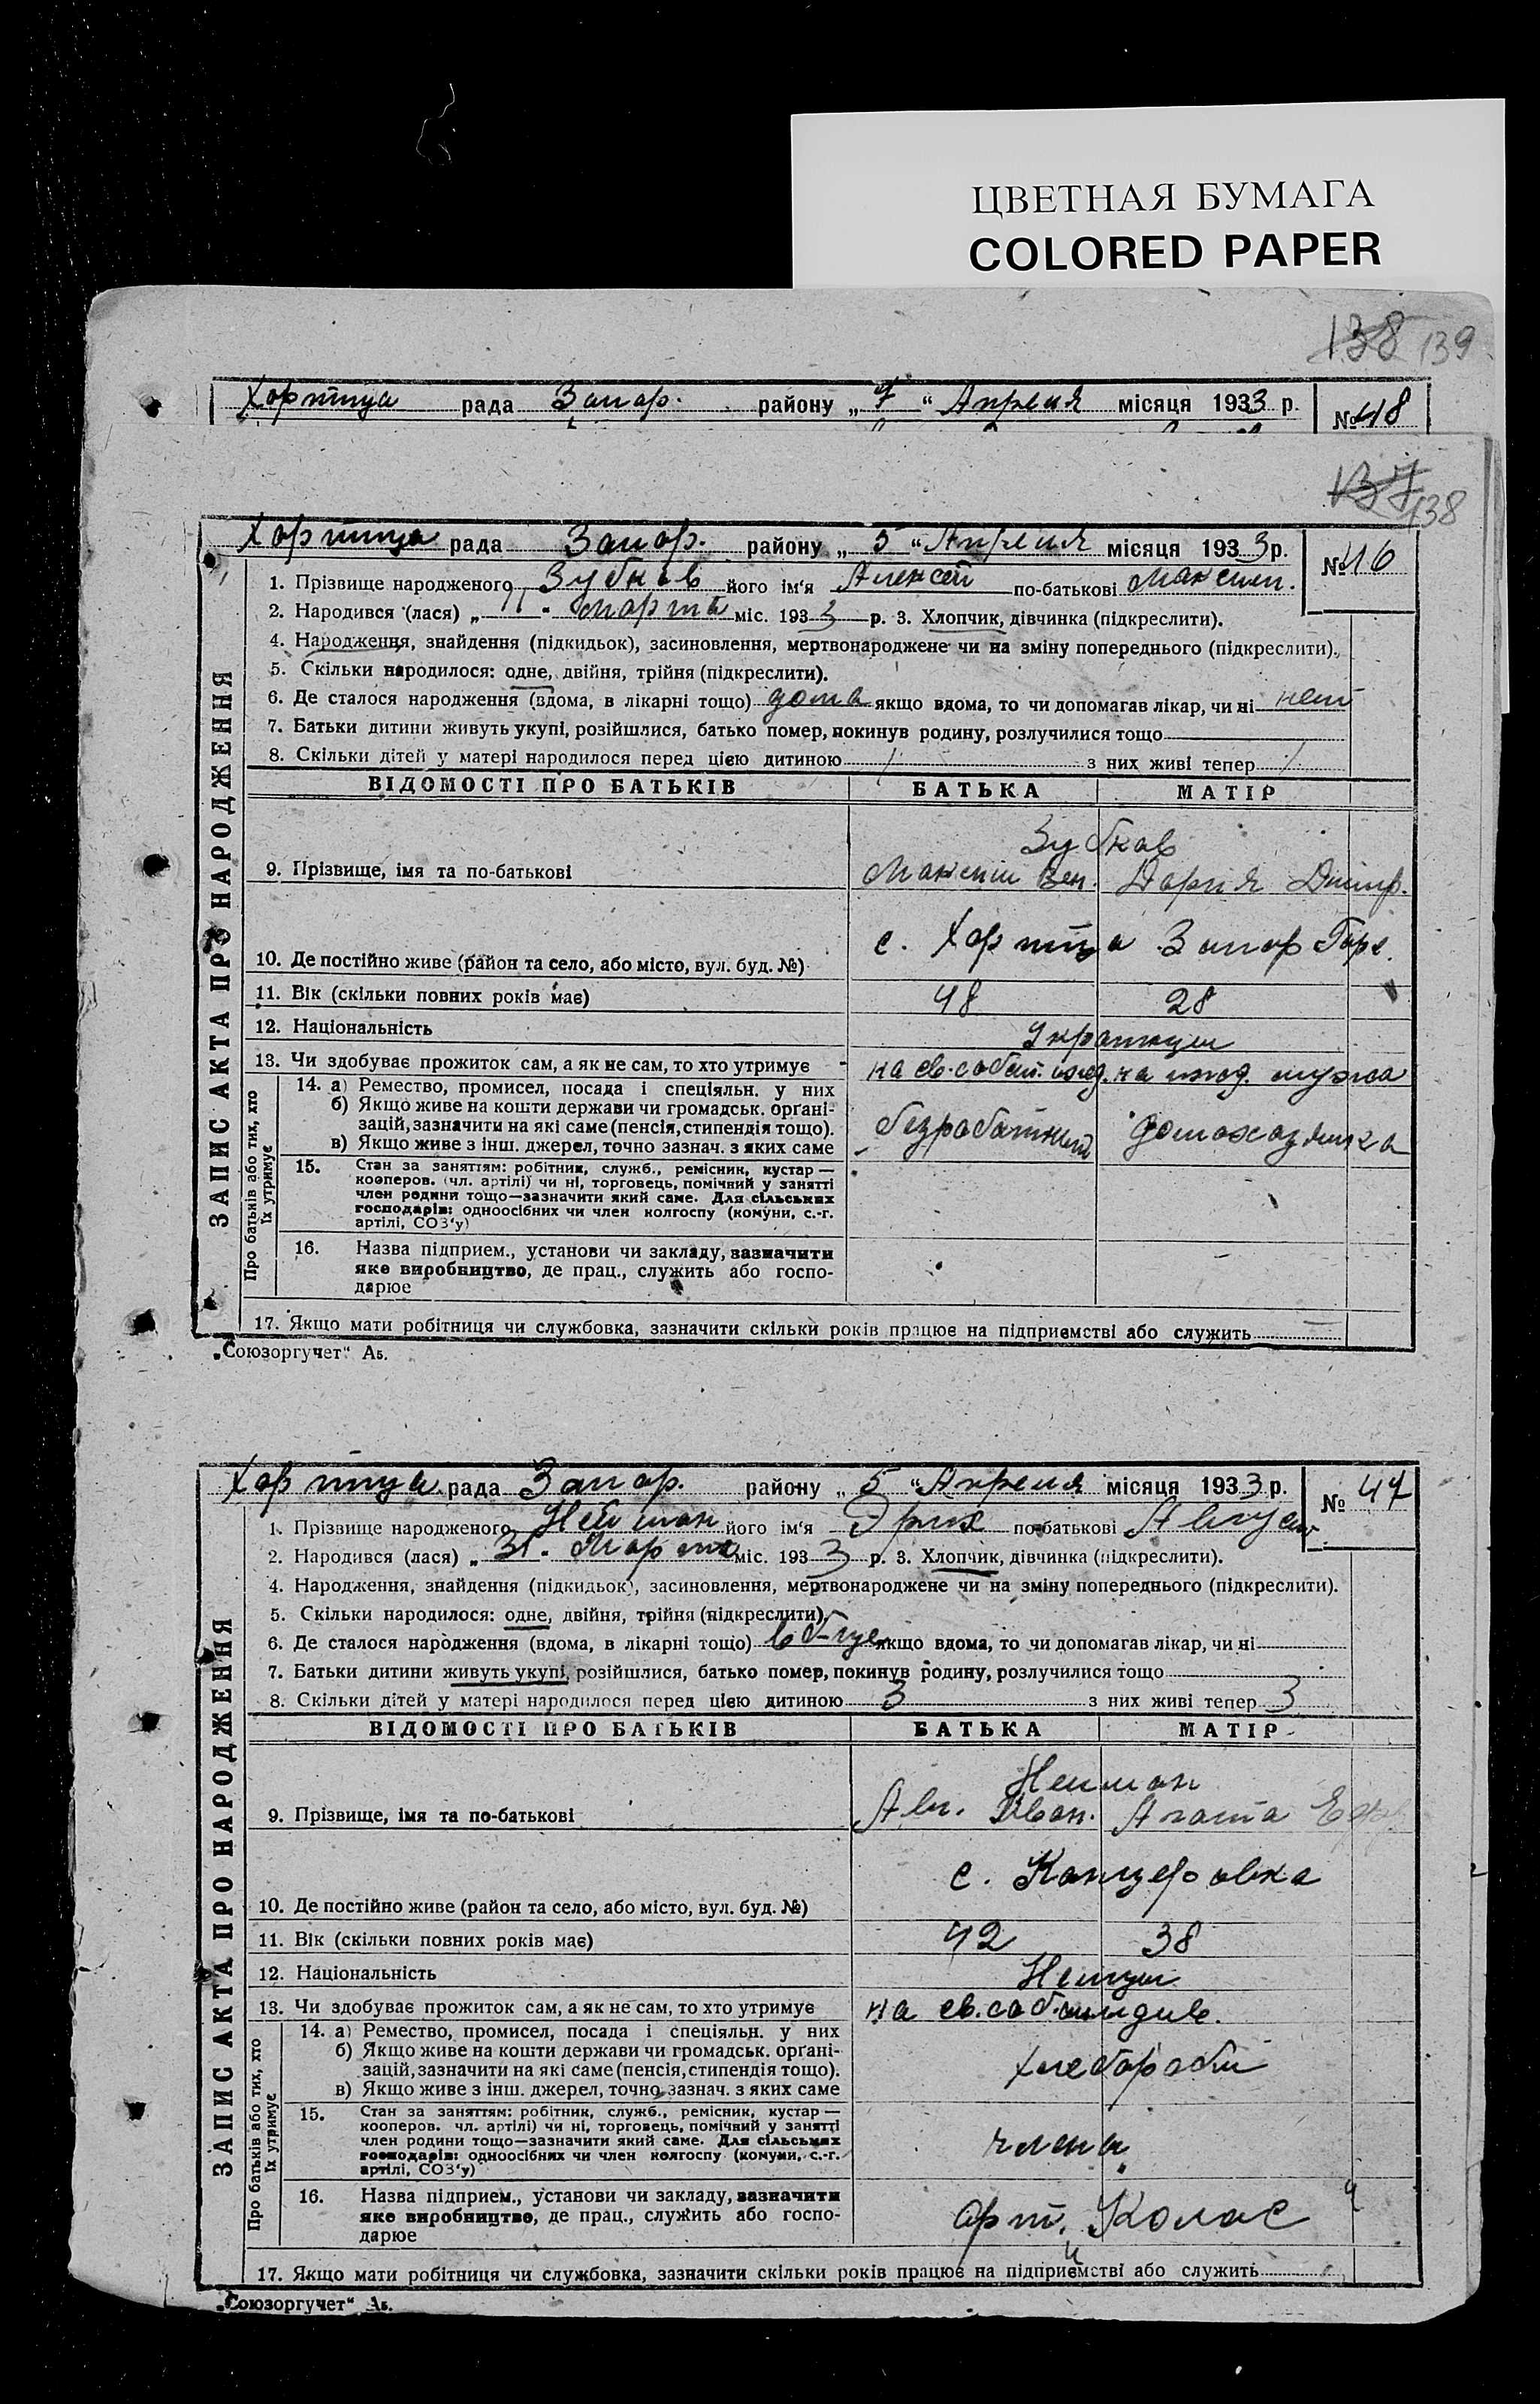 ЦВЕТНАЯ БУМАГА
COLORED PAPER
138 139
Хортица рада Запор. району „ 7 “ Апреля місяця 1933 р. № 48
137 138
Хортица рада Запор. району „ 5 “ Апреля місяця 1933 р. № 46
ЗАПИС АКТА ПРО НАРОДЖЕННЯ
1. Прізвище народженого Зубков його ім‘я Алексей по-батькові Максим.
2. Народився (лася) „ “ Марта міс. 1933 р. 3. Хлопчик, дівчинка (підкреслити).
4. Народження, знайдення (підкидьок), засиновлення, мертвонароджене чи на зміну попереднього (підкреслити).
5. Скільки народилося: одне, двійня, трійня (підкреслити).
6. Де сталося народження (вдома, в лікарні тощо) дома якщо вдома, то чи допомагав лікар, чи ні нет
7. Батьки дитини живуть укупі, розійшлися, батько помер, покинув родину, розлучилися тощо
8. Скільки дітей у матері народилося перед цією дитиною 1 з них живі тепер 1
ВІДОМОСТІ ПРО БАТЬКІВ БАТЬКА МАТІР
Зубков
9. Прізвище, імя та по-батькові Максим Дария Дмитр.
10. Де постійно живе (район та село, або місто, вул. буд. №) с. Хортица Запор
11. Вік (скільки повних років має) 48 28
12. Національність Украинцы
13. Чи здобуває прожиток сам, а як не сам, то хто утримує на св. собст. ижд. на ижд. мужа
Про батьків або тих, хто їх утримує
14. а) Ремество, промисел, посада і спеціяльн. у них
б) Якщо живе на кошти держави чи громадськ. органі-
зацій, зазначити на які саме (пенсія, стипендія тощо).
в) Якщо живе з інш. джерел, точно зазнач. з яких саме
безработный домохозяйка
15. Стан за заняттям: робітник, служб., ремісник, кустар —
кооперов. (чл. артілі) чи ні, торговець, помічний у занятті
член родини тощо—зазначити який саме. Для сільських
господарів: одноосібних чи член колгоспу (комуни, с.-г.
артілі, СОЗ‘у)
16. Назва підприєм., установи чи закладу, зазначити
яке виробництво, де прац., служить або госпо-
дарює
17. Якщо мати робітниця чи службовка, зазначити скільки років працює на підприємстві або служить
„Союзоргучет“ Аб.
Хортица рада Запор. району „ 5 “ Апреля місяця 1933 р. № 47
ЗАПИС АКТА ПРО НАРОДЖЕННЯ
1. Прізвище народженого Нейман його ім‘я Эрих по-батькові Август
2. Народився (лася) „ 31 “ Марта міс. 1933 р. 3. Хлопчик, дівчинка (підкреслити).
4. Народження, знайдення (підкидьок), засиновлення, мертвонароджене чи на зміну попереднього (підкреслити).
5. Скільки народилося: одне, двійня, трійня (підкреслити).
6. Де сталося народження (вдома, в лікарні тощо) в б-це якщо вдома, то чи допомагав лікар, чи ні
7. Батьки дитини живуть укупі, розійшлися, батько помер, покинув родину, розлучилися тощо
8. Скільки дітей у матері народилося перед цією дитиною 3 з них живі тепер 3
ВІДОМОСТІ ПРО БАТЬКІВ БАТЬКА МАТІР
Нейман
9. Прізвище, імя та по-батькові Авг. Иван. Агата
10. Де постійно живе (район та село, або місто, вул. буд. №) с. Канцеровка
11. Вік (скільки повних років має) 42 38
12. Національність Немцы
13. Чи здобуває прожиток сам, а як не сам, то хто утримує на св. соб. иждив.
Про батьків або тих, хто їх утримує
14. а) Ремество, промисел, посада і спеціяльн. у них
б) Якщо живе на кошти держави чи громадськ. органі-
зацій, зазначити на які саме (пенсія, стипендія тощо).
в) Якщо живе з інш. джерел, точно зазнач. з яких саме
хлеборобы
15. Стан за заняттям: робітник, служб., ремісник, кустар —
кооперов. чл. артілі) чи ні, торговець, помічний у занятті
член родини тощо—зазначити який саме. Для сільських
господарів: одноосібних чи член колгоспу (комуни, с.-г.
артілі, СОЗ‘у)
члены
16. Назва підприєм., установи чи закладу, зазначити
яке виробництво, де прац., служить або госпо-
дарює
арт. Колос
17. Якщо мати робітниця чи службовка, зазначити скільки років працює на підприємстві або служить
„Союзоргучет“ Аб.